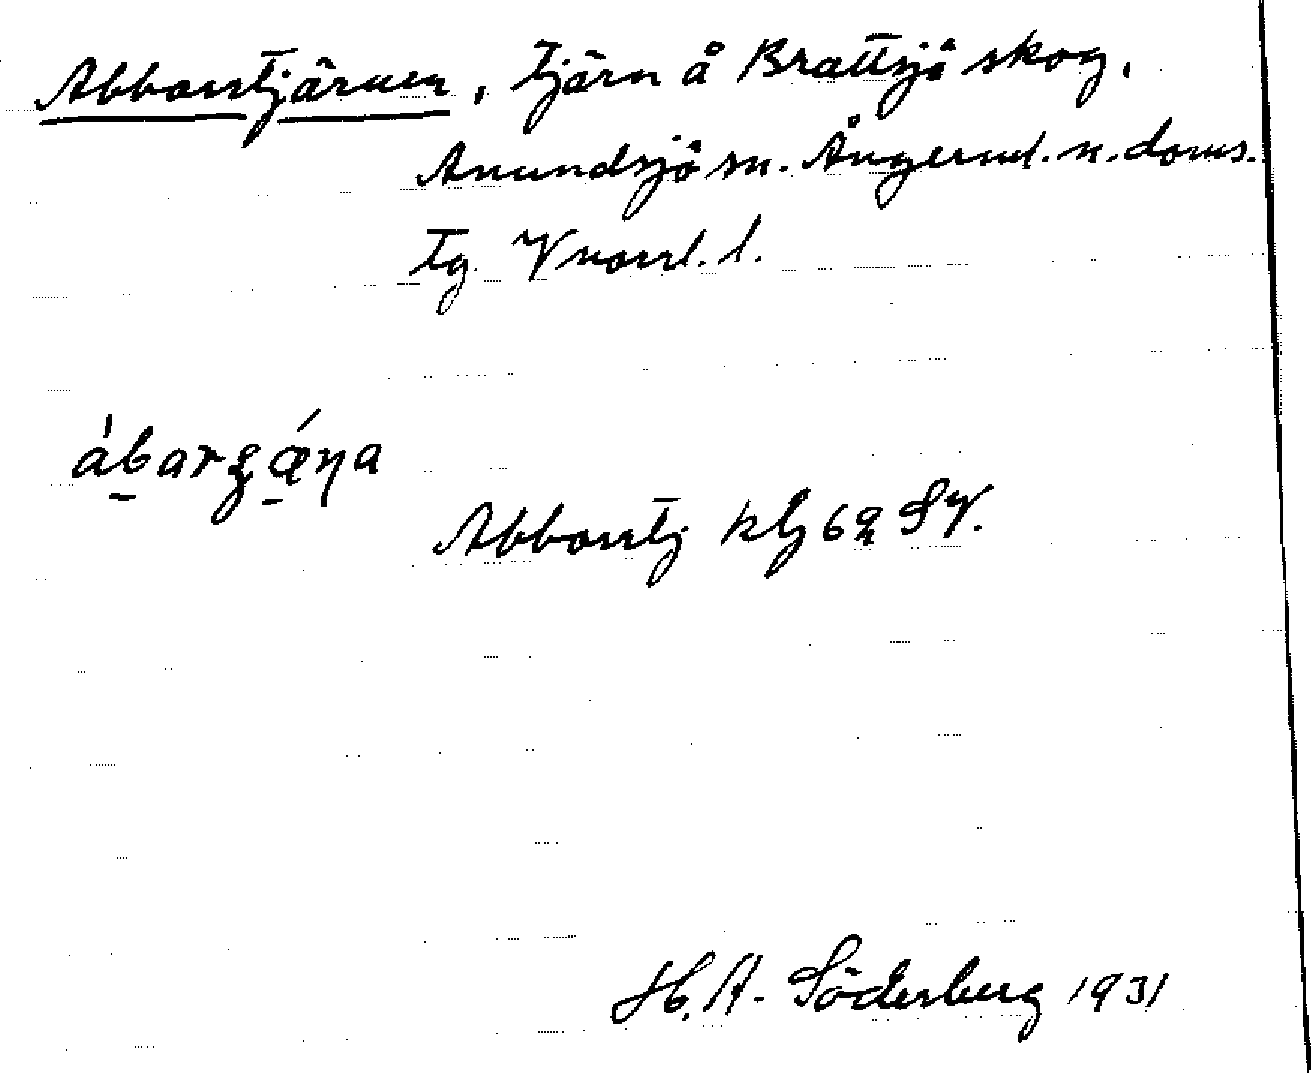 Abborrtjärnen, tjärn å Brattsjö skog,
Anundsjö sn. Ångerml. n. doms.
tg. Vnorrl. l.
ábarʒǽna
Abborrtj klj 62 SV.
H. A. Söderberg 1931